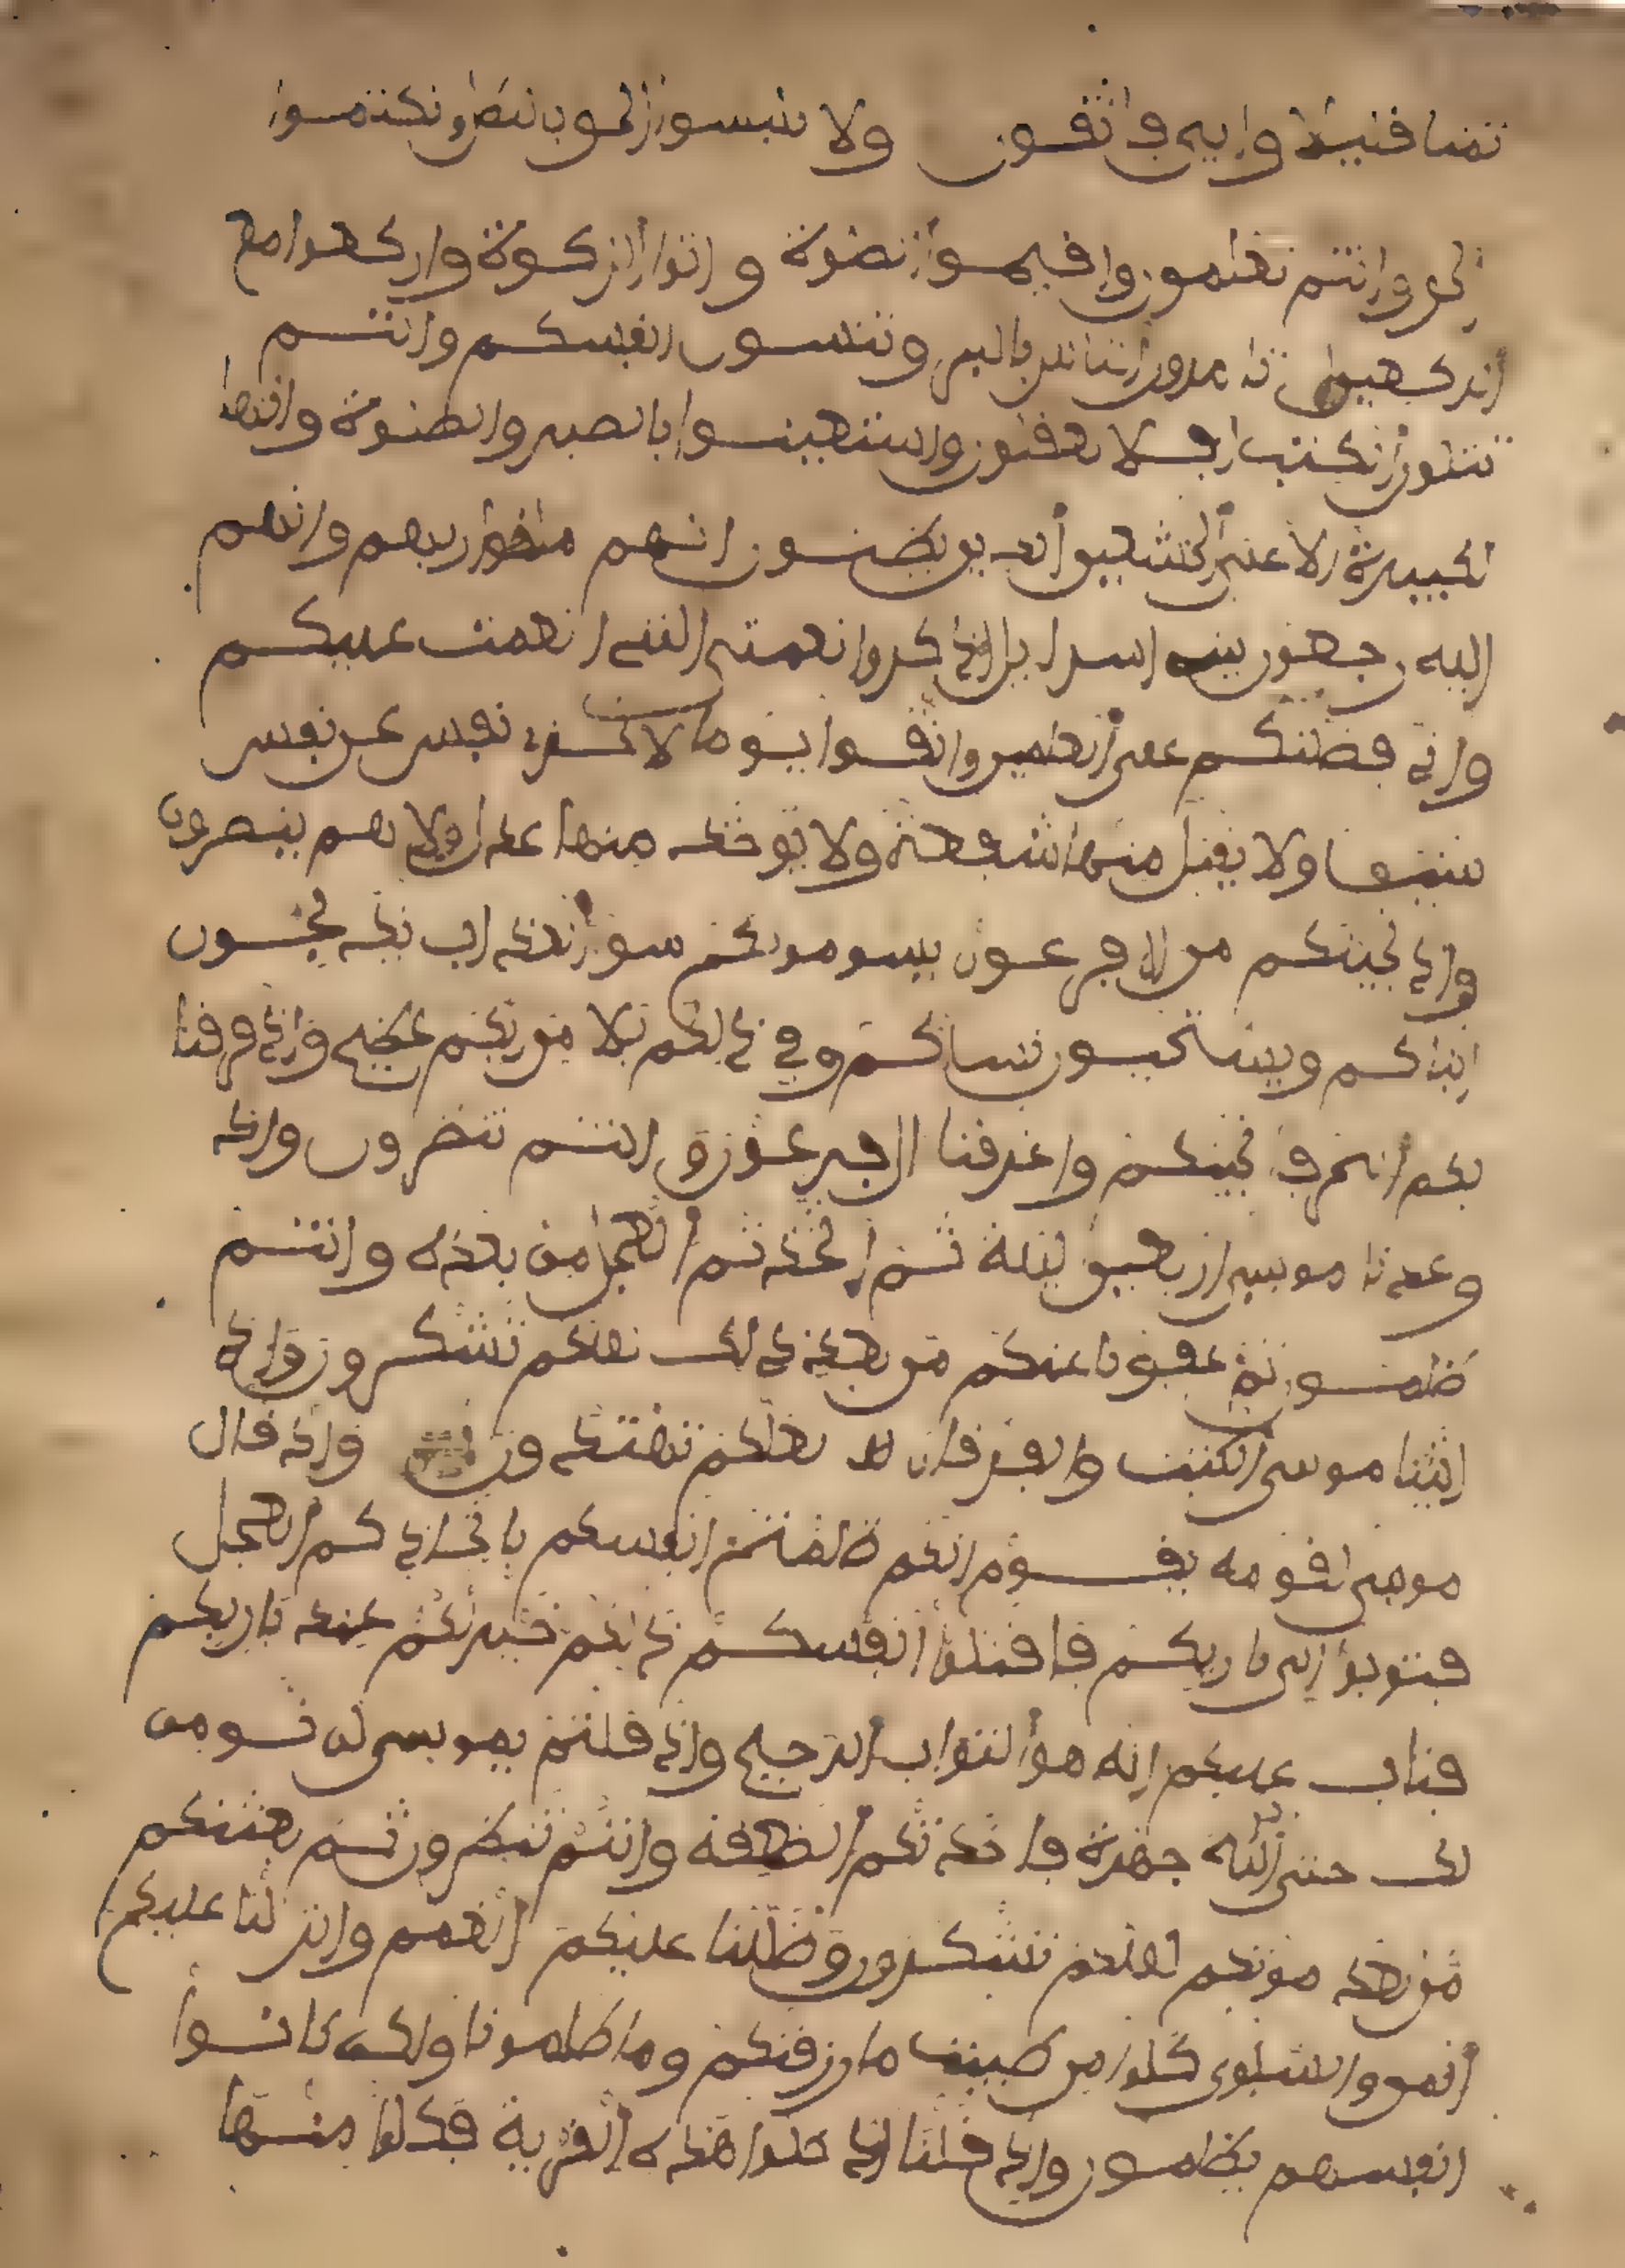 ثمنا قليلا وايى فاتقون ولا تلبسوا الحق بالبطل وتكتموا
الحق وانتم تعلمون واقيموا الصلوة واتوا الزكوة واركعوا مع
الركعين اتامرون الناس بالبر وتنسون انفسكم وانتم
تتلون الكتب افلا تعقلون واستعينوا بالصبر والصلوة وانها
لكبيرة الا على الخشعين الذين يظنون انهم ملقوا ربهم وانهم
اليه رجعون يبنى اسراءيل اذكروا نعمتى التى انعمت عليكم
وانى فضلتكم على العلمين واتقوا يوما لا تجزى نفس عن نفس
شيئا ولا يقبل منها شفعة ولا يوخذ منها عدل ولا هم ينصرون
واذ نجينكم من ال فرعون يسومونكم سو العذاب يذبحون
ابناكم ويستحيون نساكم وفى ذلكم بلا من ربكم عظيم واذ فرقنا
بكم البحر فانجينكم واغرقنا ال فرعون وانتم تنظرون واذ
وعدنا موسى اربعين ليلة ثم اتخذتم العجل من بعده وانتم
ظلمون ثم عفونا عنكم من بعد ذلك لعلكم تشكرون واذ
اتينا موسى الكتب والفرقان لعلكم تهتدون واذ قال
موسى لقومه يقوم انكم ظلمتم انفسكم باتخاذكم العجل
فتوبوا الى باريكم فاقتلوا انفسكم ذلكم خير لكم عند باريكم
فتاب عليكم انه هو التواب الرحيم واذ قلتم يموسى لن نومن
لك حتى نرى الله جهرة فاخذتكم الصعقة وانتم تنظرون ثم بعثنكم
من بعد موتكم لعلكم تشكرون وظللنا عليكم الغمم وانزلنا عليكم
المن والسلوى كلوا من طيبت ما رزقنكم وما ظلمونا ولكن كانوا
انفسهم يظلمون واذ قلنا ادخلوا هذه القرية فكلوا منها